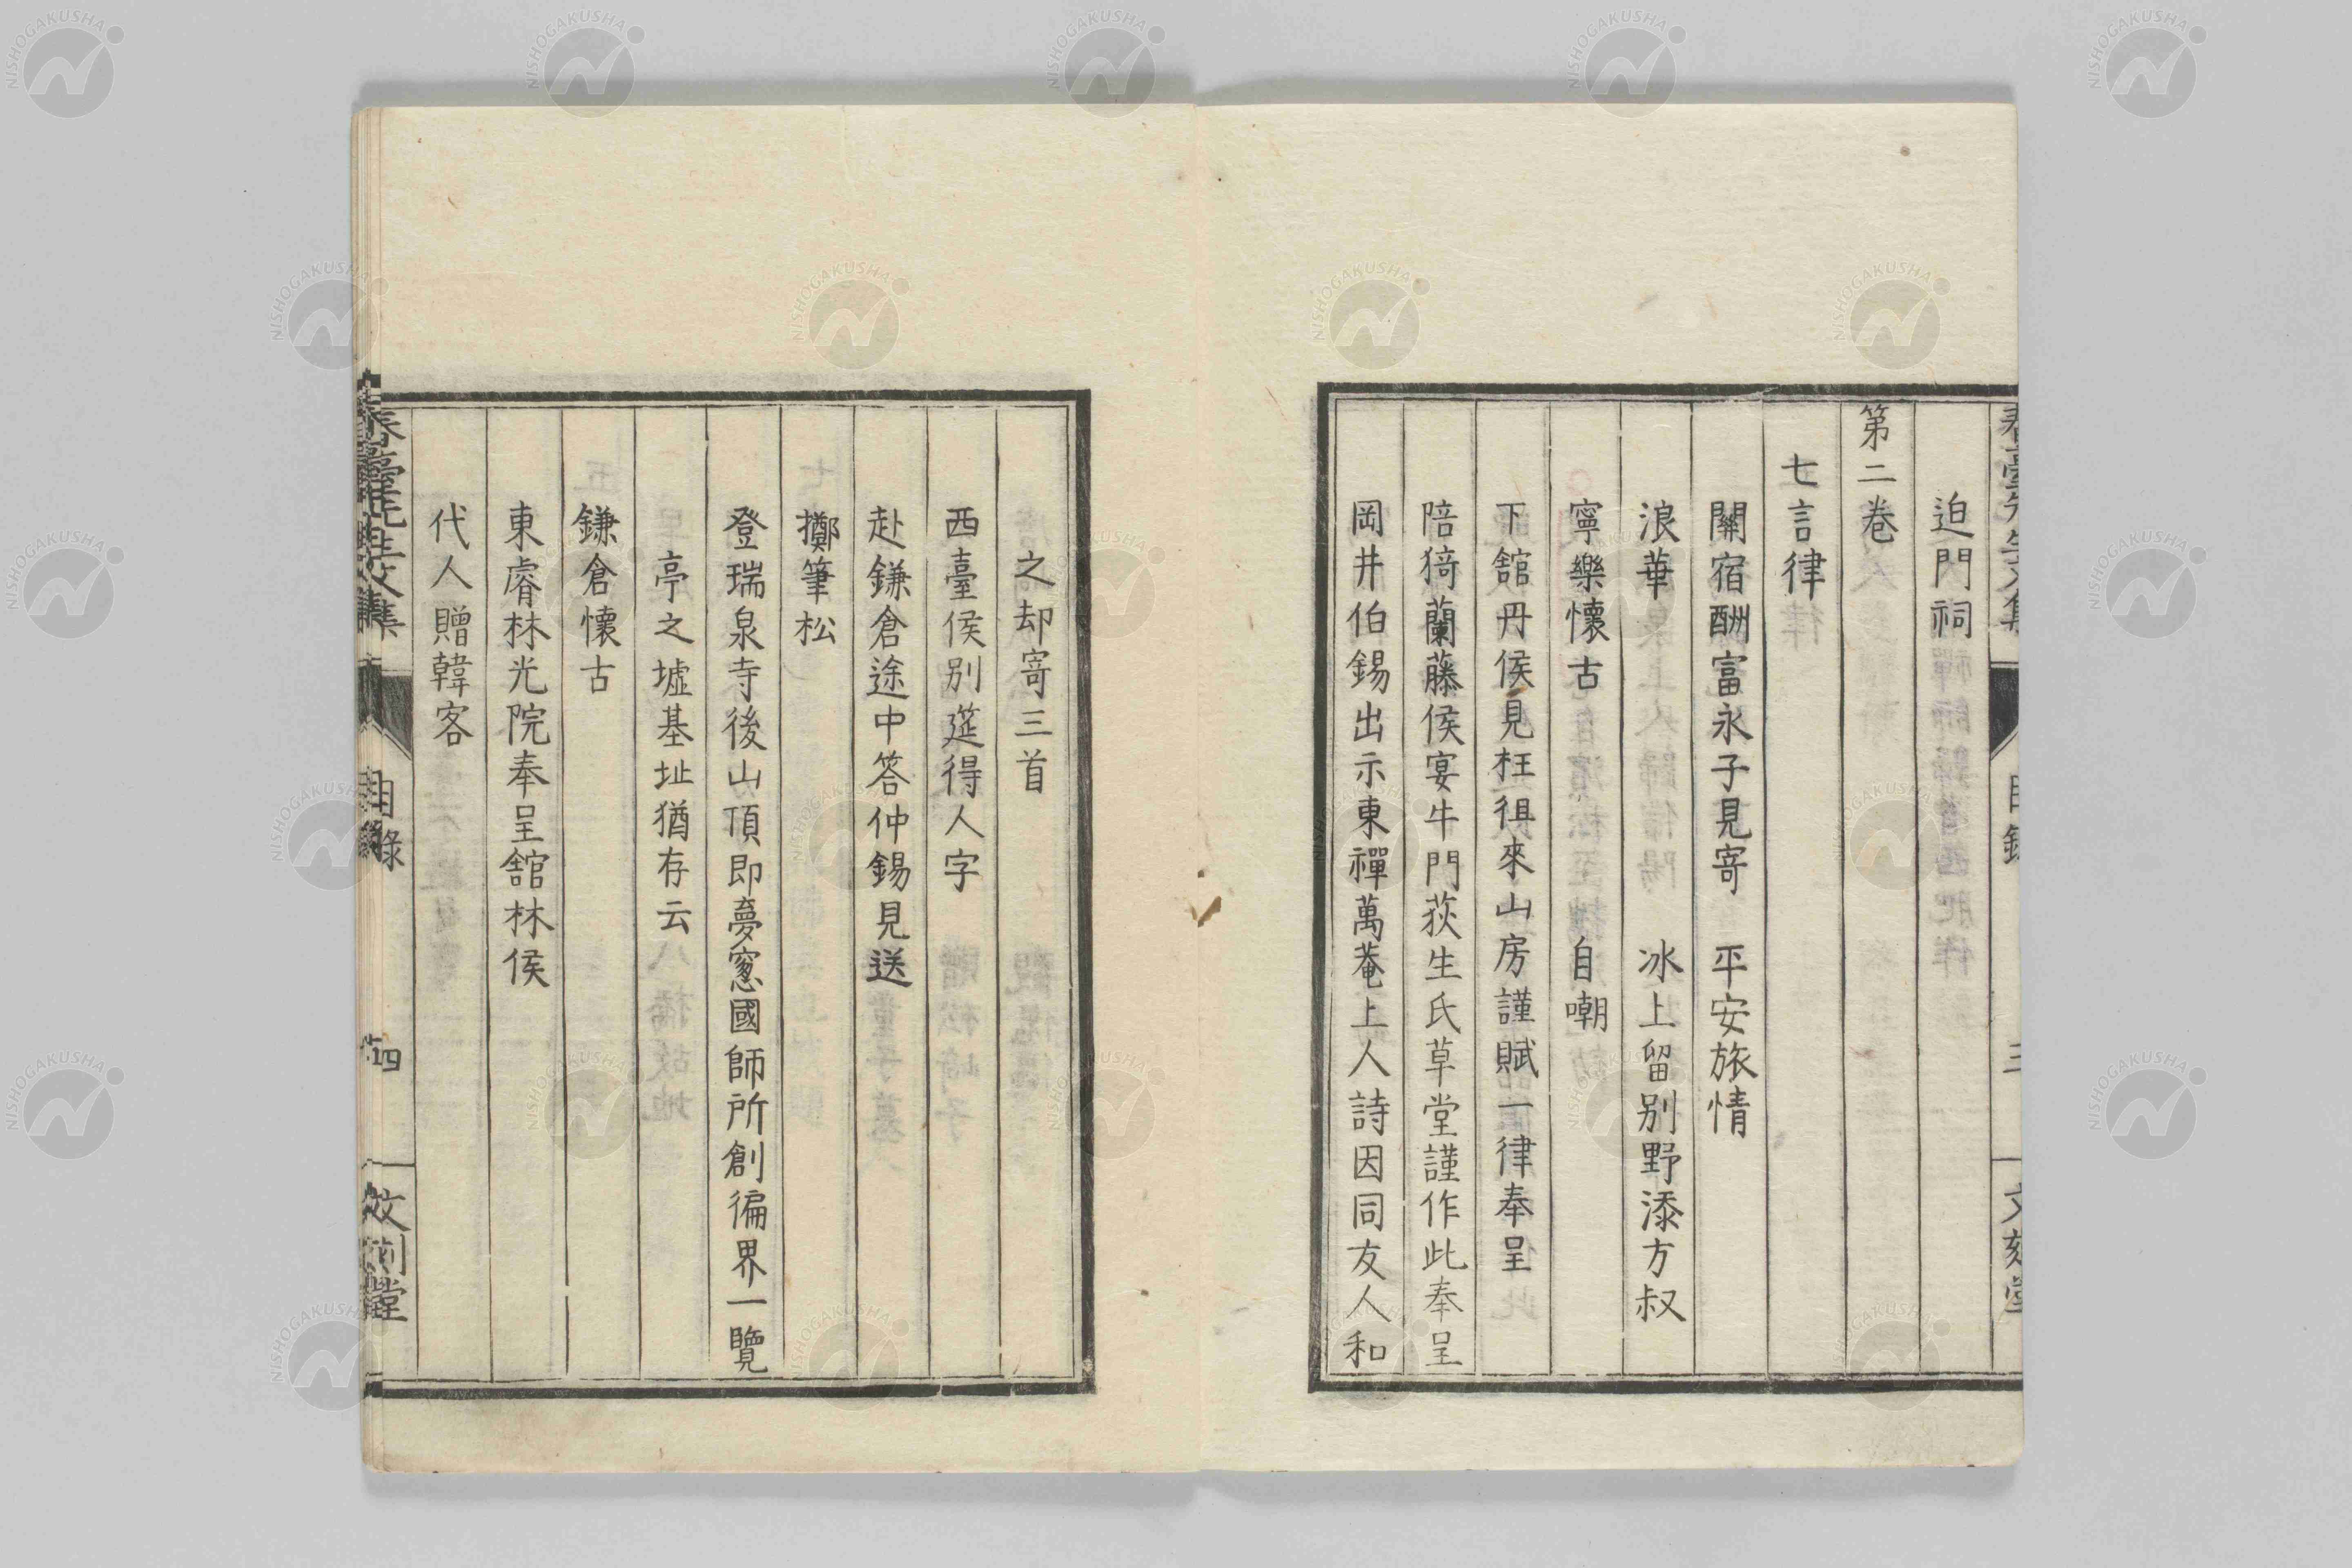 迫門祠
第二卷
七言律
關宿酬富永子見寄　平安旅情
浪華　冰上留別野添方叔
寧樂懷古　自嘲
下舘丹侯見枉徂來山房謹賦一律奉呈
陪猗蘭藤侯宴牛門荻生氏草堂謹作此奉呈
岡井伯錫出示東禪萬菴上人詩因同友人和
之却寄三首
西臺侯別筵得人字
赴鎌倉途中答仲錫見送
擲筆松
登瑞泉寺後山頂即夢窻國師所創徧界一覽
亭之墟基址猶存云
鎌倉懷古
東睿林光院奉呈舘林侯
代人贈韓客
目錄
四
NISHOGAKUSHA